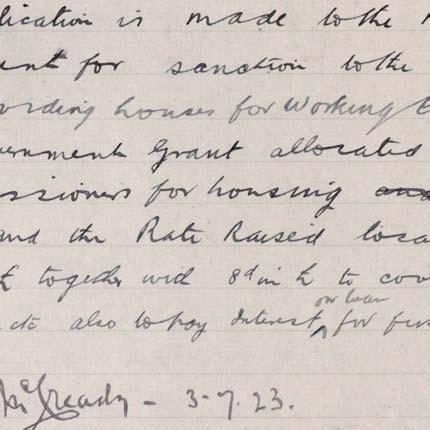 lication is made to the
ent for sanction to the
oviding houses for Working
ernment Grant allocated
ssioners for housing
and the Rate Raised loca
£ together with 8d in £ to cov
etc also to pay Interest on loan for
McGready - 3-7.23.